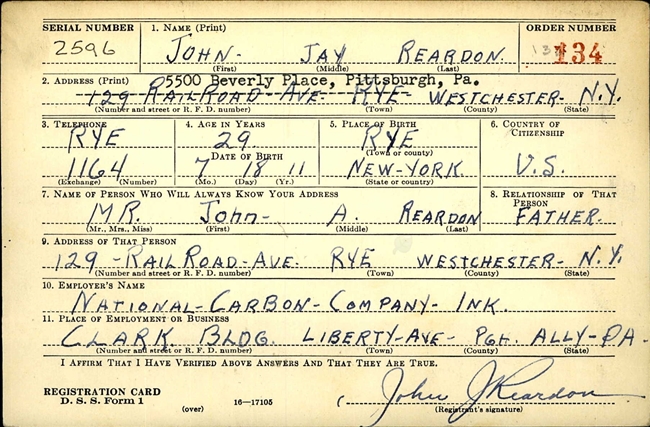 SERIAL NUMBER 1. NAME (Print) ORDER NUMBER
2596 JOHN- JAY REARDON. 134
(First) (Middle) (Last)
2. ADDRESS (Print) 5500 Beverly Place, Pittsburgh, Pa.
129 RAILROAD-AVE. RYE WESTCHESTER- N.Y.
(Number and street or R. F. D. number) (Town) (County) (State)
3. TELEPHONE 4. AGE IN YEARS 5. PLACE OF BIRTH 6. COUNTRY OF CITIZENSHIP
RYE 29 RYE
DATE OF BIRTH (Town or county)
1164 7 18 11 NEW-YORK. U.S.
(Exchange) (Number) (Mo.) (Day) (Yr.) (State or country)
7. NAME OF PERSON WHO WILL ALWAYS KNOW YOUR ADDRESS 8. RELATIONSHIP OF THAT PERSON
MR. JOHN- A. REARDON FATHER.
(Mr., Mrs., Miss) (First) (Middle) (Last)
9. ADDRESS OF THAT PERSON
129-RAILROAD-AVE. RYE WESTCHESTER- N.Y.
(Number and street or R. F. D. number) (Town) (County) (State)
10. EMPLOYER'S NAME
NATIONAL-CARBON-COMPANY-INK.
11. PLACE OF EMPLOYMENT OR BUSINESS
CLARK. BLDG. LIBERTY-AVE- PGH. ALLY-PA.
(Number and street or R. F. D. number) (Town) (County) (State)
I AFFIRM THAT I HAVE VERIFIED ABOVE ANSWERS AND THAT THEY ARE TRUE.
REGISTRATION CARD John J Reardon
D. S. S. Form 1 (over) 16-17105 (Registrant's signature)